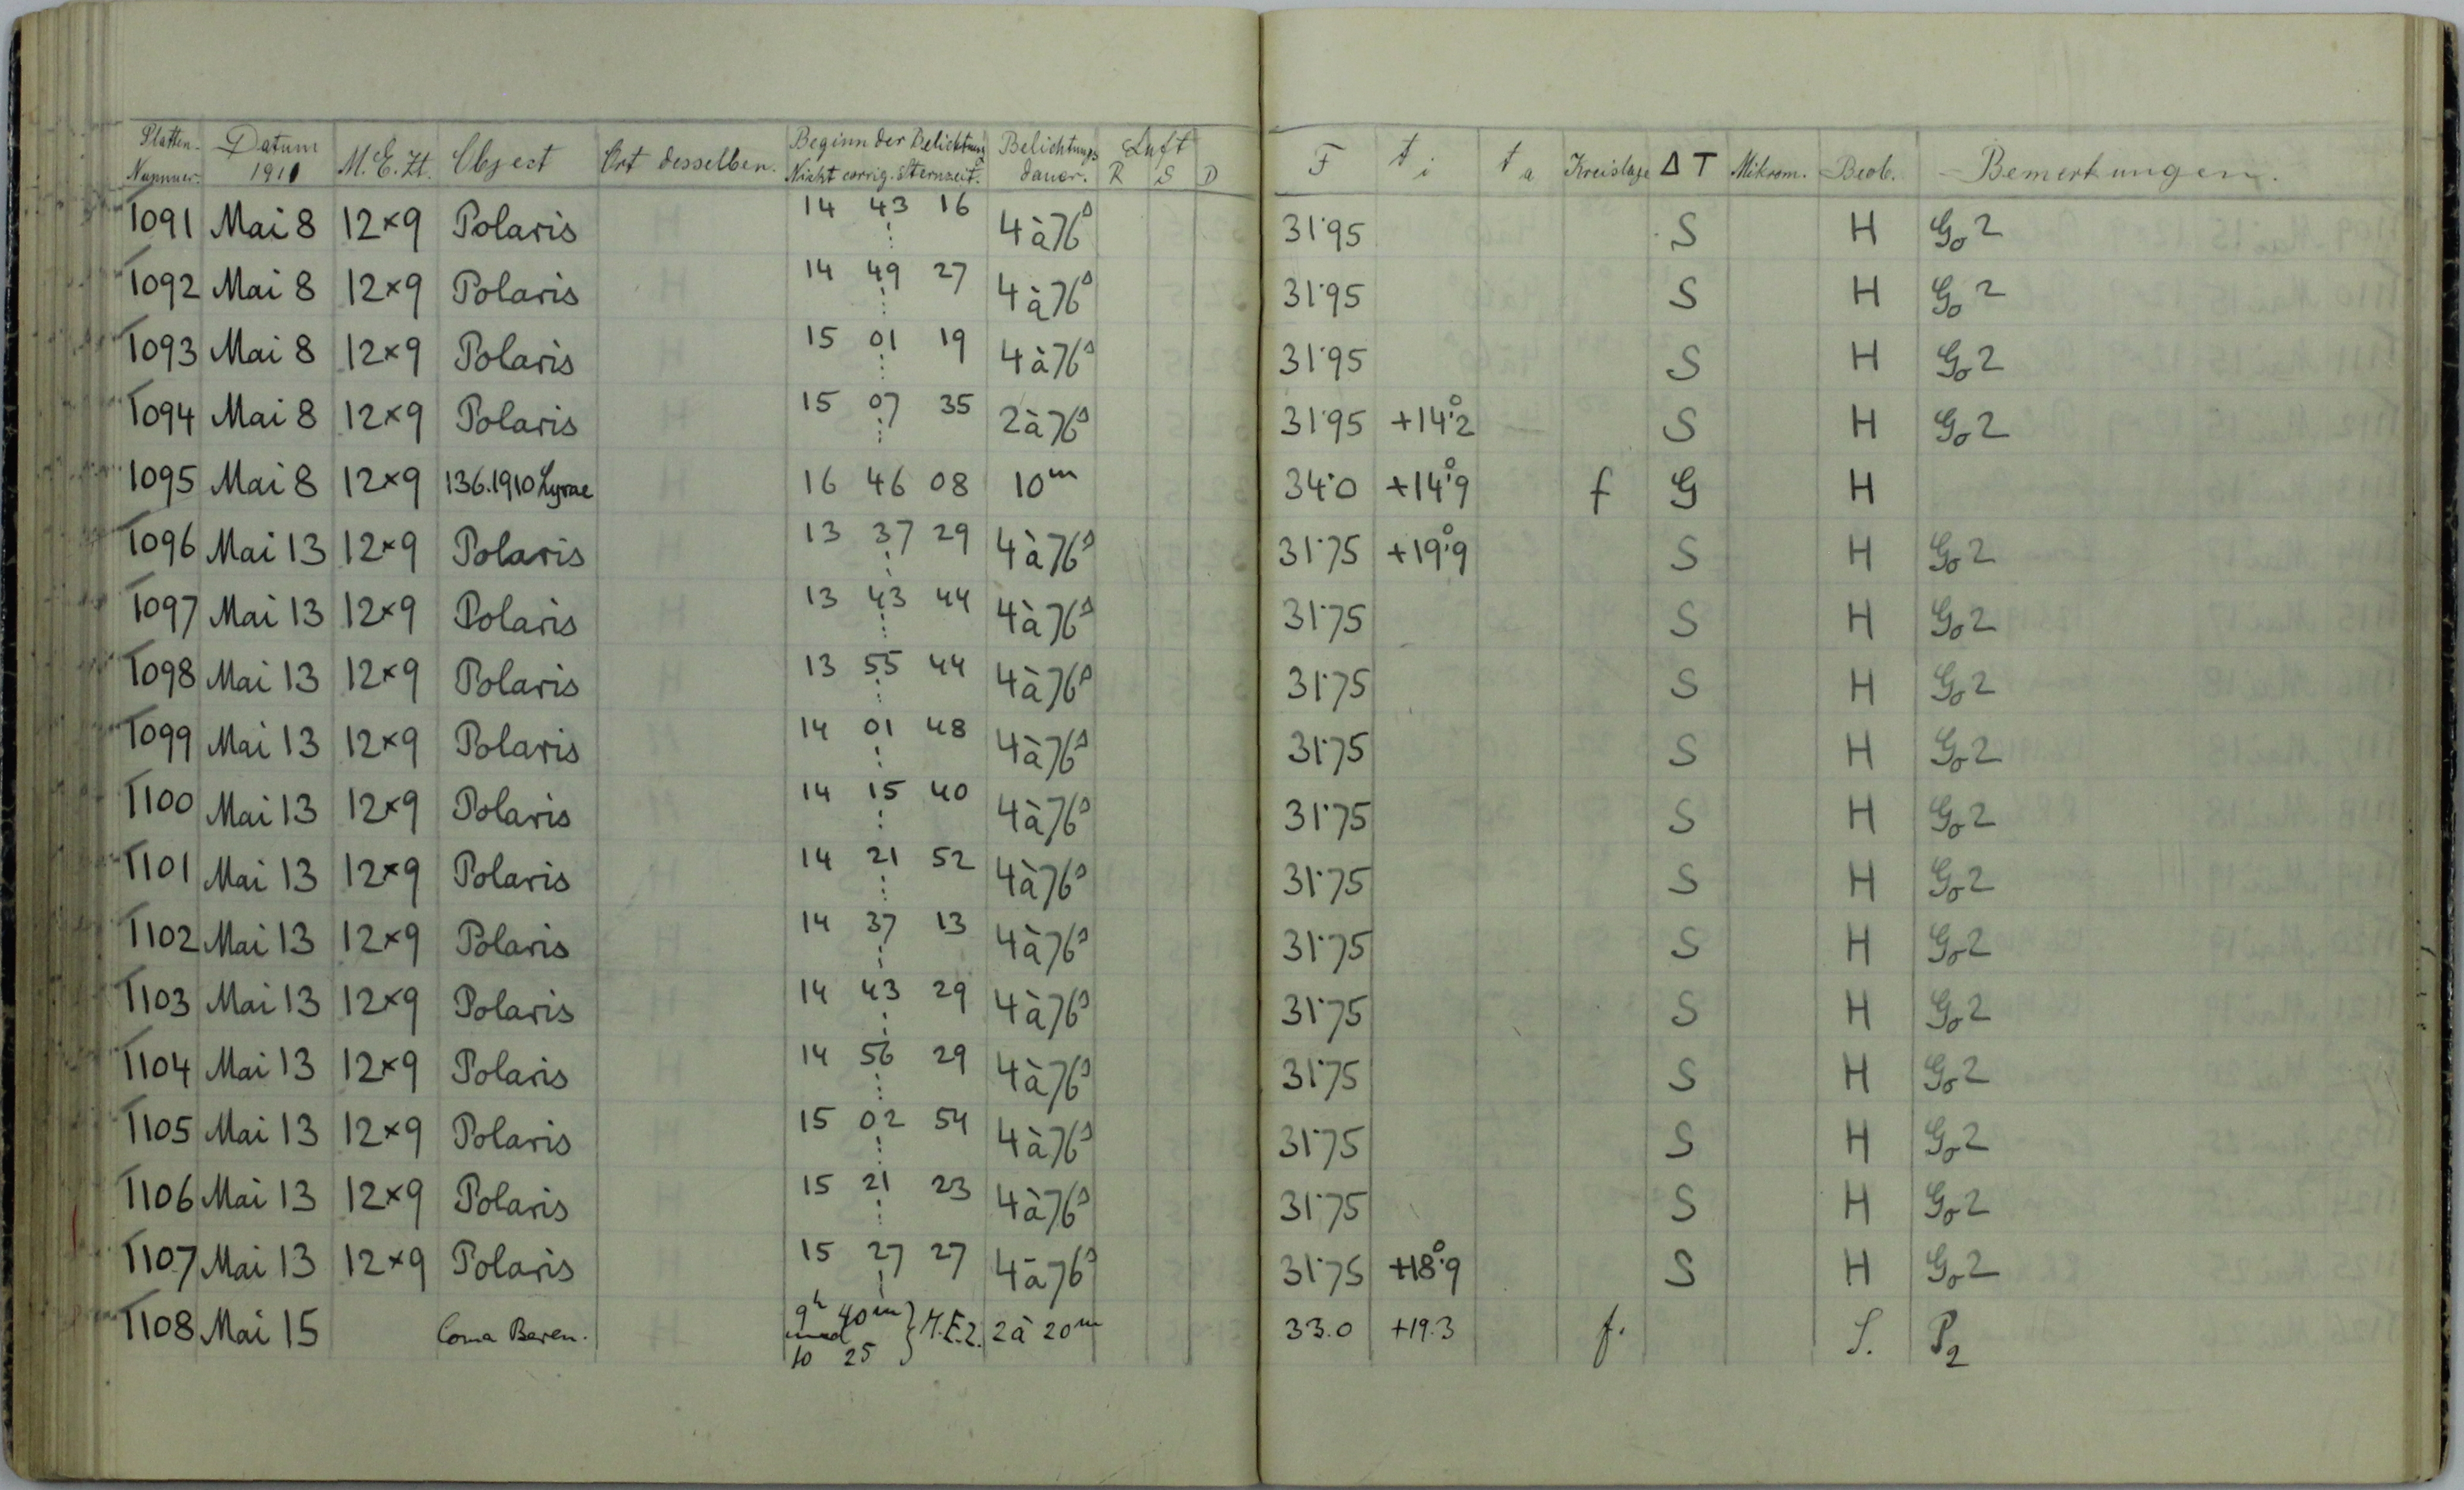 Platten- Nummer. Datum 1910 M.E.Zt. Object Ort desselben. Beginn der Belichtung Nicht corrig. Sternzeit. Belichtungs dauer. Luft R S D F t i t a Kreislage Δ T Mikrom. Beob. Bemerkungen.
1091 Mai 8 12×9 Polaris 14 43 16 4 à 76s 31·95 S H Go 2
1092 Mai 8 12×9 Polaris 14 49 27 4 à 76s 31·95 S H Go 2
1093 Mai 8 12×9 Polaris 15 01 19 4 à 76s 31·95 S H Go 2
1094 Mai 8 12×9 Polaris 15 07 35 2 à 76s 31·95 +14°2 S H Go 2
1095 Mai 8 12×9 136.1910 Lyrae 16 46 08 10m 34·0 +14°9 f G H
1096 Mai 13 12×9 Polaris 13 37 29 4 à 76s 31·75 +19°9 S H Go 2
1097 Mai 13 12×9 Polaris 13 43 44 4 à 76s 31·75 S H Go 2
1098 Mai 13 12×9 Polaris 13 55 44 4 à 76s 31·75 S H Go 2
1099 Mai 13 12×9 Polaris 14 01 48 4 à 76s 31·75 S H Go 2
1100 Mai 13 12×9 Polaris 14 15 40 4 à 76s 31·75 S H Go 2
1101 Mai 13 12×9 Polaris 14 21 52 4 à 76s 31·75 S H Go 2
1102 Mai 13 12×9 Polaris 14 37 13 4 à 76s 31·75 S H Go 2
1103 Mai 13 12×9 Polaris 14 43 29 4 à 76s 31·75 S H Go 2
1104 Mai 13 12×9 Polaris 14 56 29 4 à 76s 31·75 S H Go 2
1105 Mai 13 12×9 Polaris 15 02 54 4 à 76s 31·75 S H Go 2
1106 Mai 13 12×9 Polaris 15 21 23 4 à 76s 31·75 S H Go 2
1107 Mai 13 12×9 Polaris 15 27 27 4 à 76s 31·75 +18°9 S H Go 2
1108 Mai 15 Coma Beren. 9h 40m und 10 25 } M.E.Z. 2 à 20m 33.0 +19.3 f. S. P2